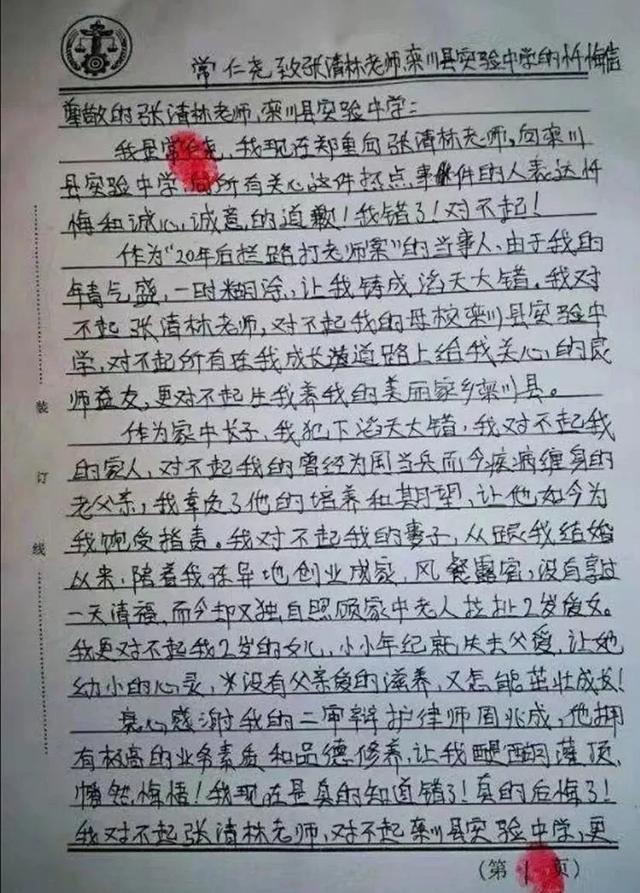 常仁尧致张清林老师,栾川县实验中学的忏悔信
尊敬的张清林老师,栾川县实验中学:
我是常仁尧,我现在郑重向张清林老师,向栾川
县实验中学,向所有关心这件打点事件的人表达忏
悔和诚心,诚意,的道歉!我错了!对不起!
作为"20年后拦路打老师案"的当事人,由于我的
年青气盛,一时糊涂,让我铸成滔天大错。我对
不起张清林老师,对不起我的母校栾川县实验中
学,对不起所有在我成长道路上给我关心,的良
师益友,更对不起生我养我的美丽家乡栾川县。
作为家中长子,我犯下滔天大错,我对不起我
的家人,对不起我的曾经为国当兵而今疾病缠身的
老父亲,我辜负了他的培养和期望,让他如今为
我饱受指责。我对不起我的妻子,从跟我结婚
以来,陪着我在异地创业成家,风餐露宿,没有享过
一天清福,而今却又独自照顾家中老人拉扯2岁爱女。
我更对不起我2岁的女儿,小小年纪就失去父爱,让她
幼小的心灵,没有父亲爱的滋养,又怎能茁壮成长!
衷心感谢我的二审辩护律师周兆成,他拥
有极高的业务素质和品德修养,让我醍醐灌顶,
幡然悔悟!我现在是真的知道错了!真的后悔了!
我对不起张清林老师,对不起栾川县实验中学,更
(第1页)
装
订
线